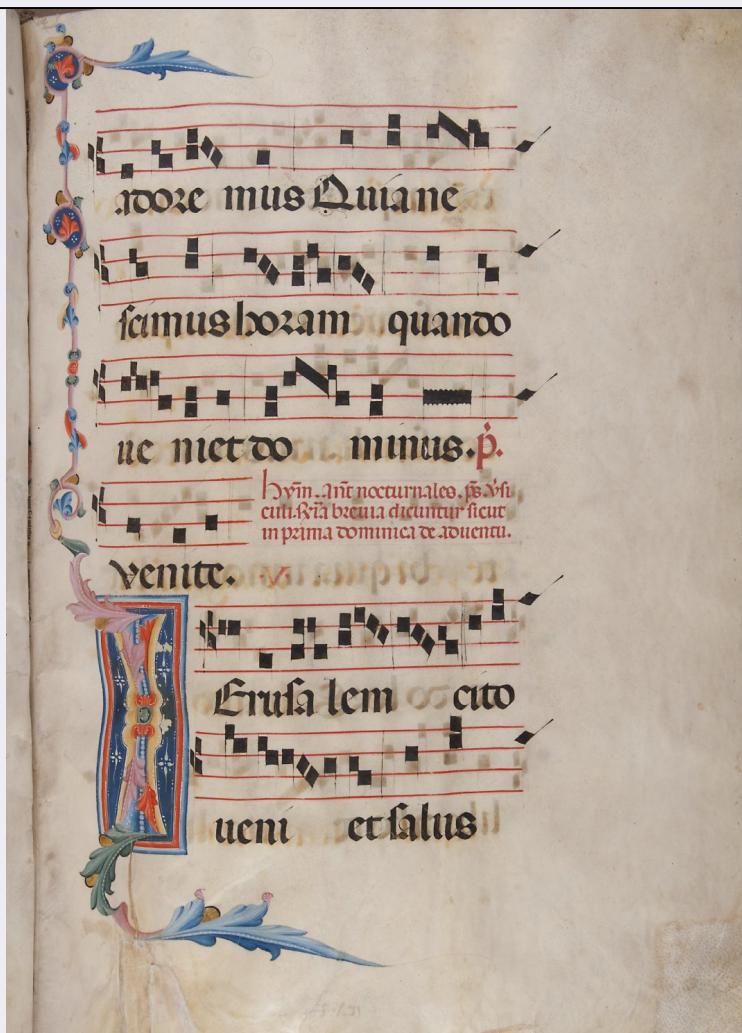 adore mus Quia ne
scimus horam quando
ue niet do minus. p̄.
Hym̄. ant̄ nocturnales. ps̄. v̄si
culi. R̄ia breuia dicuntur sicut
in prima dominica de aduentu.
venite. v̄.
IErusa lem cito
ueni et salus